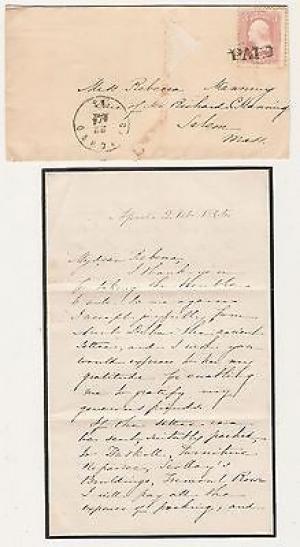 PAID
Miss Rebecca Manning
of Mr. Richard C. Manning
Salem
Mass.
April 2
My dear Rebecca,
I thank you
for taking the trouble
to write to me again.
I accept gratefully from
Aunt Dike the ancient
settee, and I wish you
would express to her my
gratitude for enabling
me to gratify my
generous friends.
If the settee
be sent, suitably packed,
to Haskell, Furniture
Repairer, Scollay's
Buildings, Tremont Row
I will pay all the
expense of packing, and